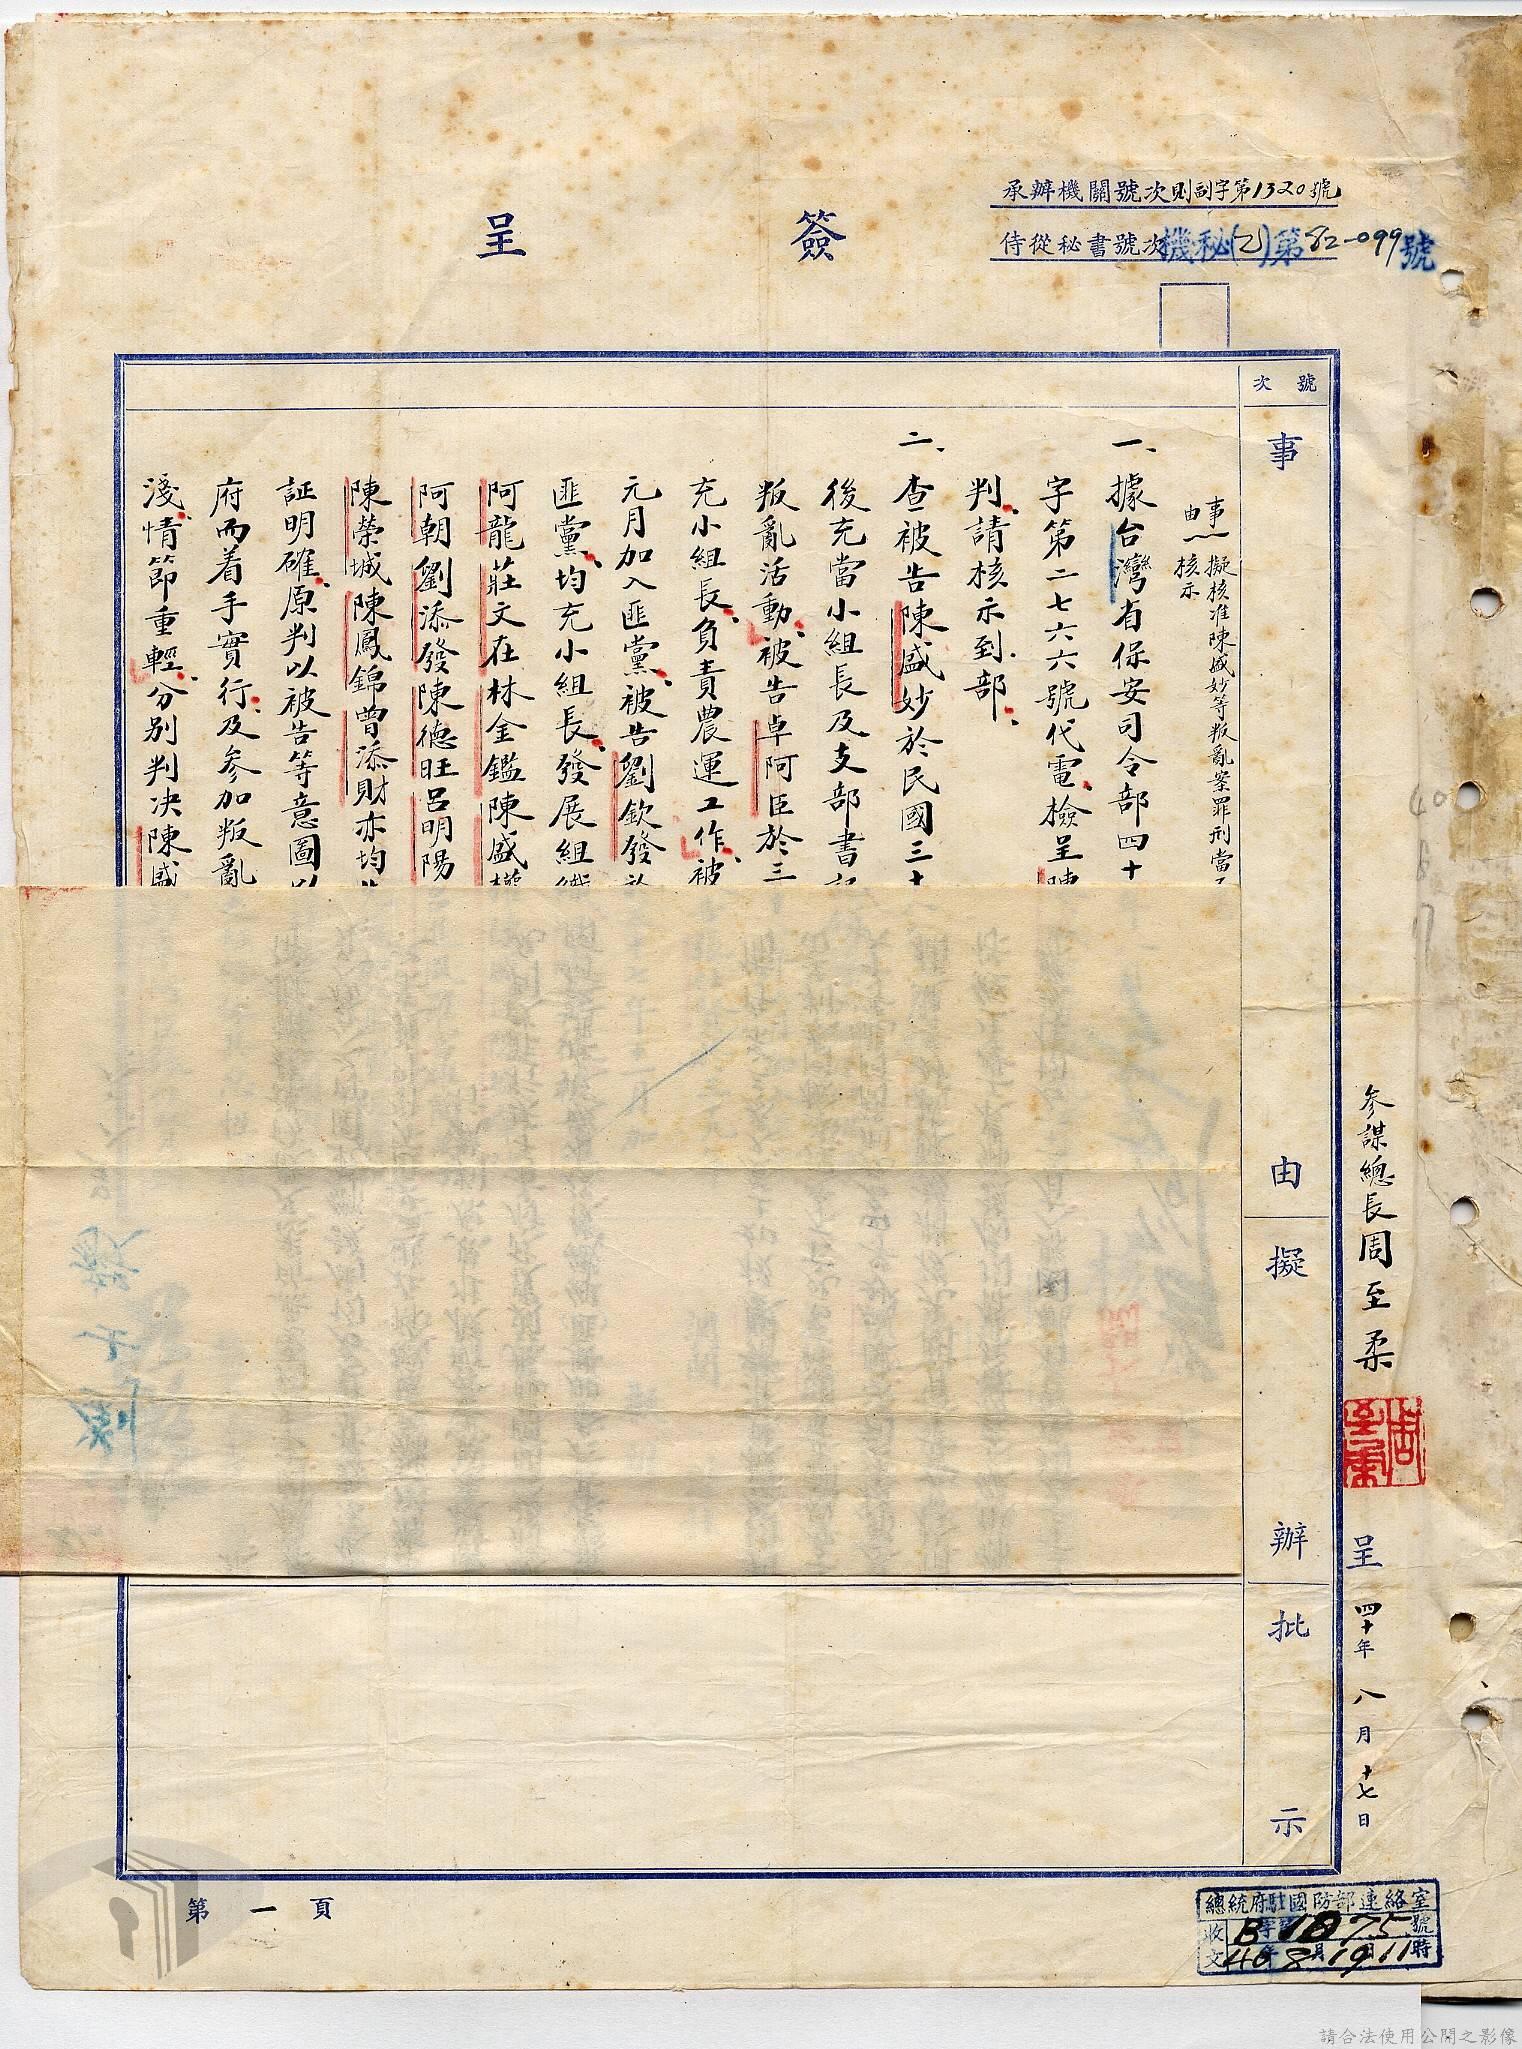 簽呈
承辦機關號次則副字第1320號
侍從秘書號次機秘(乙)第82-099號
號次
事由
擬辦
批示
參謀總長周至柔
周至柔
呈
四十年八月十七日
事由
擬核准陳盛妙等叛亂案罪刑當
核示
一、據台灣省保安司令部四十
字第二七六六號代電、檢呈陳
判、請核示到部、
二、查被告陳盛妙於民國三十
後充當小組長及支部書記
叛亂活動、被告卓阿臣於三
充小組長、負責農運工作、被
元月加入匪黨、被告劉欽發於
匪黨、均充小組長、發展組織
阿龍莊文在林金鑑陳盛權
阿朝劉添發陳德旺呂明陽
陳榮城陳鳳錦曾添財亦均
証明確、原判以被告等意圖以
府而着手實行、及參加叛亂
淺、情節重輕、分別判決陳盛
第一頁
總統府駐國防部連絡室
收文
B字1075號
40年8月19日11時
請合法使用公開之影像